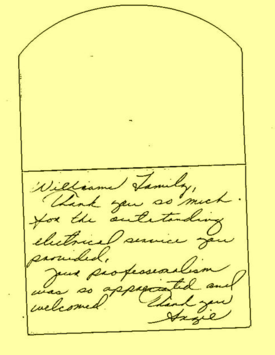 Williams Family,
Thank you so much
for the outstanding
electrical service you
provided,
your professionalism
was so appreciated and
welcomed Thank you
Angie